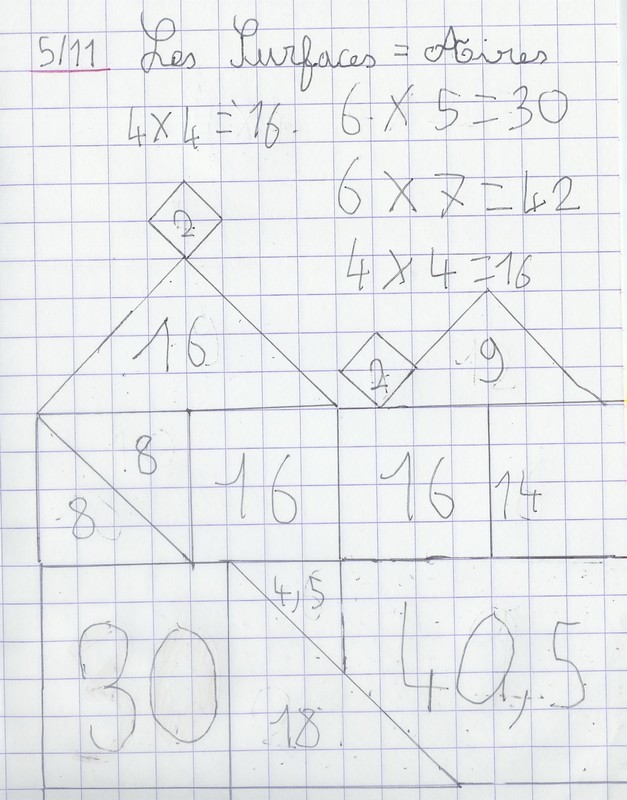 5/11 Les Surfaces = Aires
4×4=16. 6×5=30
6×7=42
4×4=16
2
16
2 9
8 8 16 16 14
4,5
30 18 40,5